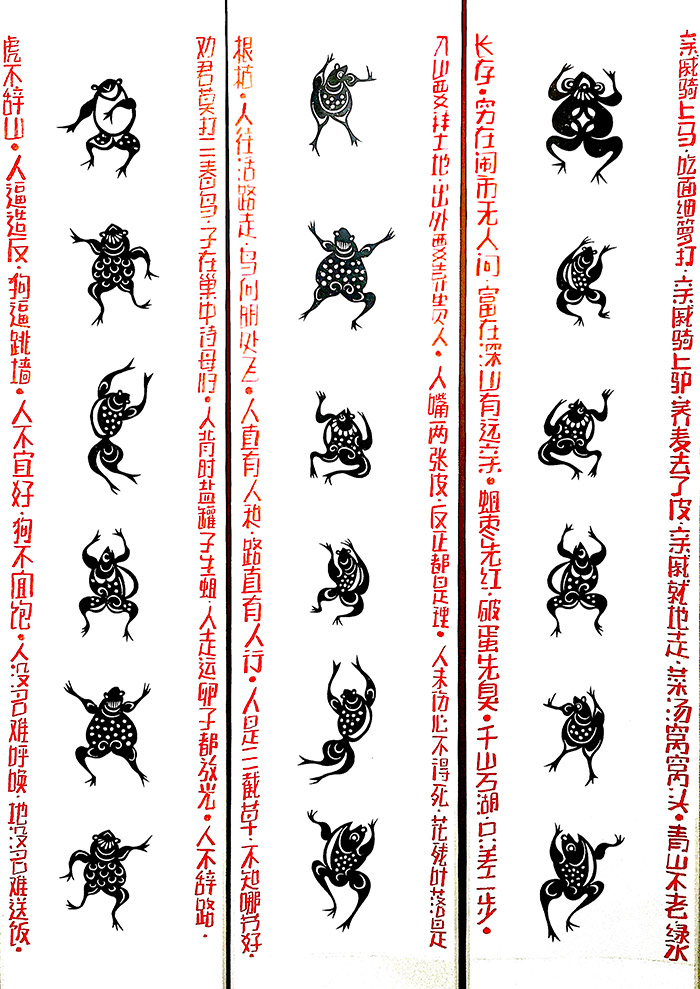 亲戚骑上马·吃面细箩打·亲戚骑上驴·荞麦去了皮·亲戚就地走·菜汤窝窝头●青山不老·绿水
长存●穷在闹市无人问·富在深山有远亲●蛆枣先红·破蛋先臭●千山石湖·只差二步●
入山要拜土地·出外要靠贵人●人嘴两张皮·反正都是理●人未伤心不得死·花残叶落是
根枯●人往活路走·鸟向明处飞●人直有人和·路直有人行●人是三截草·不知哪节好●
劝君莫打三春鸟·子在巢中待母归●人背时盐罐子生蛆·人走运卵子都放光●人不辞路·
虎不辞山●人逼造反·狗逼跳墙●人不宜好·狗不宜饱●人没名难呼唤·地没名难送饭●